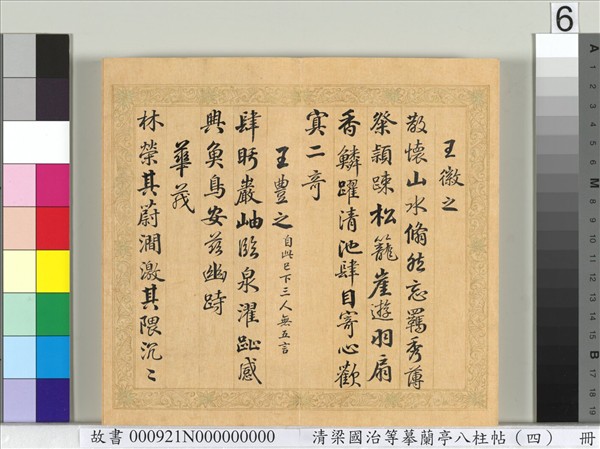 王徽之
散懷山水翛然忘羈秀薄
粲穎疎松籠崖遊羽扇
香鱗躍清池肆目寄心歡
寘二奇
王豊之自此已下三人無五言
肆眄巖岫臨泉濯趾感
興奐鳥安茲幽跱
華茂
林榮其蔚澗激其隈沉〻
6
A
1
2
3
4
5
6
M
8
9
10
11
12
13
14
15
B
17
18
19
故書 000921N000000000 清梁國治等摹蘭亭八柱帖（四） 冊